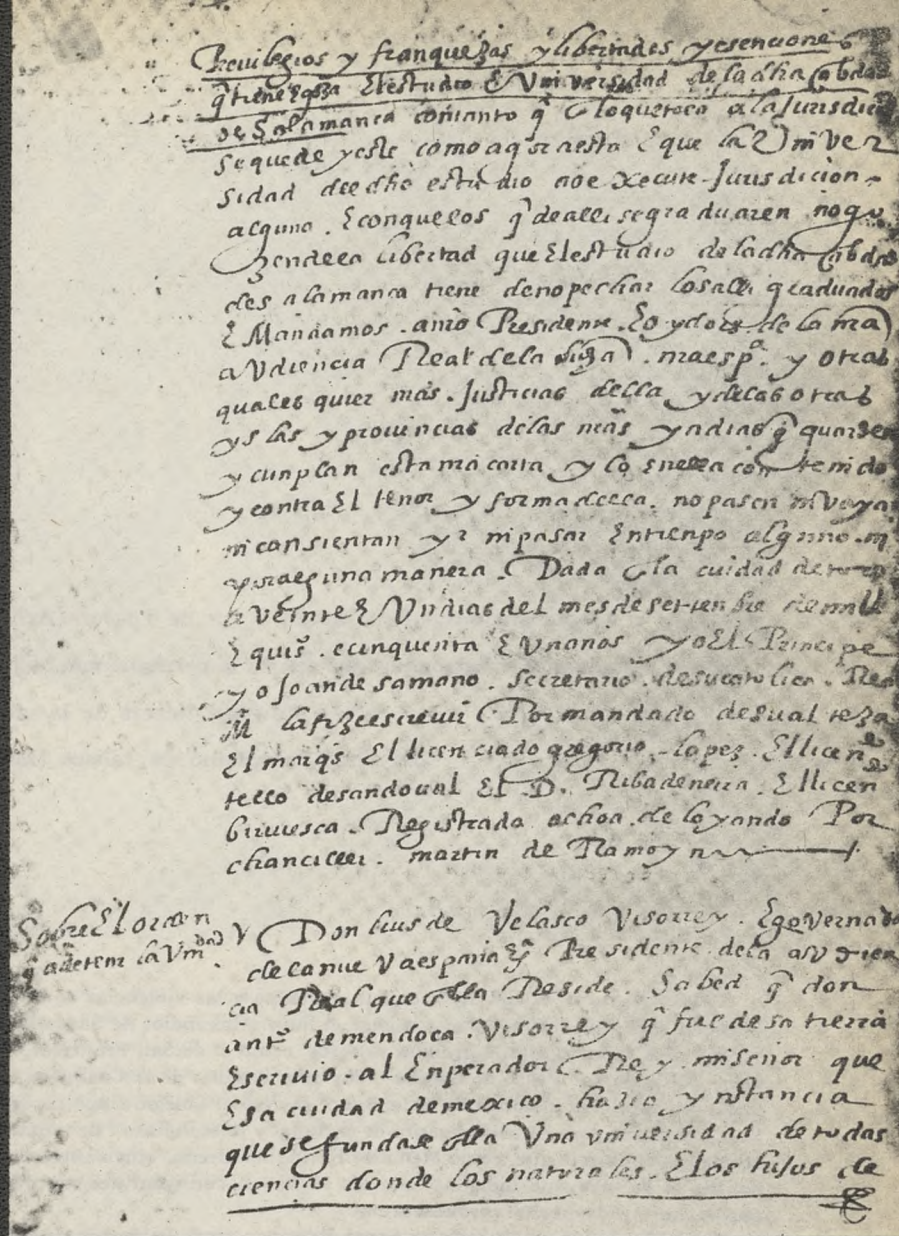 Previlegios y franquezas y libertades y esenciones
q̃ tiene E goza El estudio E Universidad de la dha cibdad
de Salamanca contanto q̃ en loquetoca a la Jurisdicion
se quede y este como agora esta E que la Univer
sidad del dho estudio no exècute Jurisdicion
alguna . E conquelos q̃ de alli segraduaren nogo
zendela libertad que El estudio de ladha cibdad
desalamanca tiene denopechar losalli graduados
E Mandamos . anro Presidente . E oydores de la nra
aUdiencia Real dela dicha nuaesp.ª y otras
quales quier nr̃as . Justicias della y delas otras
yslas y provincias delas nr̃as yndias q̃ guarden
y cunplan esta mi carta y lo enella contenido
y contra El tenor y forma della . nopasen ni vayan
ni consientan yr ni pasar En tienpo alguno . ni
por alguna manera . Dada en la ciudad de toro
a Veinte E Un dias del mes de setienbre de mill
E quis̃ . e cinquenta E Un años yo El Principe
yo Joan de samano . secretario . de su catolica . Real
M̃ la fize escrevir Por mandado de su alteza
El marq̃s El licenciado gregorio . lopez . El licendº
tello desandoval El D. Ribadeneira . El licendº
birviesca . Registrada ochoa . de loyando Por
chanciller . martin de Ramoyn
Sobre El orden
q̃ a de tener la Unidad
Don luis de Velasco Visorrey . E governador
dela nueVa españa y Presidente dela aUdien
cia Real que en ella Reside . Sabed q̃ don
antº demendoca . Visorrey q̃ fue desa tierra
Escrivio . al Enperador . Rey mi señor que
Esa ciudad demexico . hazia ynstancia
que se fundase en ella Una universidad de todas
ciencias donde los naturales . E los hijos de